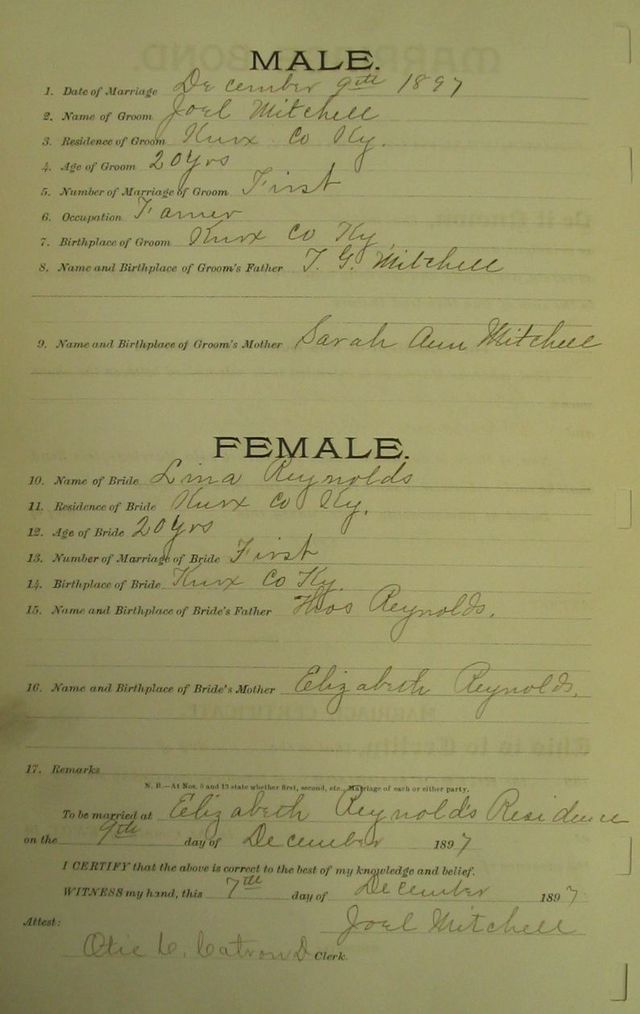 MALE.
1. Date of Marriage December 9th 1897
2. Name of Groom Joel Mitchell
3. Residence of Groom Knox Co Ky.
4. Age of Groom 20 Yrs
5. Number of Marriage of Groom First
6. Occupation Famer
7. Birthplace of Groom Knox Co Ky
8. Name and Birthplace of Groom's Father T. G. Mitchell
9. Name and Birthplace of Groom's Mother Sarah Ann Mitchell
FEMALE.
10. Name of Bride Lina Reynolds
11. Residence of Bride Knox Co Ky.
12. Age of Bride 20 Yrs
13. Number of Marriage of Bride First
14. Birthplace of Bride Knox Co Ky.
15. Name and Birthplace of Bride's Father Thos Reynolds.
16. Name and Birthplace of Bride's Mother Elizabeth Reynolds.
17. Remarks
N. B.—At Nos. 5 and 13 state whether first, second, etc., Marriage of each or either party.
To be married at Elizabeth Reynolds Residence
on the 9th day of December 1897
I CERTIFY that the above is correct to the best of my knowledge and belief.
WITNESS my hand, this 7th day of December 1897
Joel Mitchell
Attest:
Catron D Clerk.